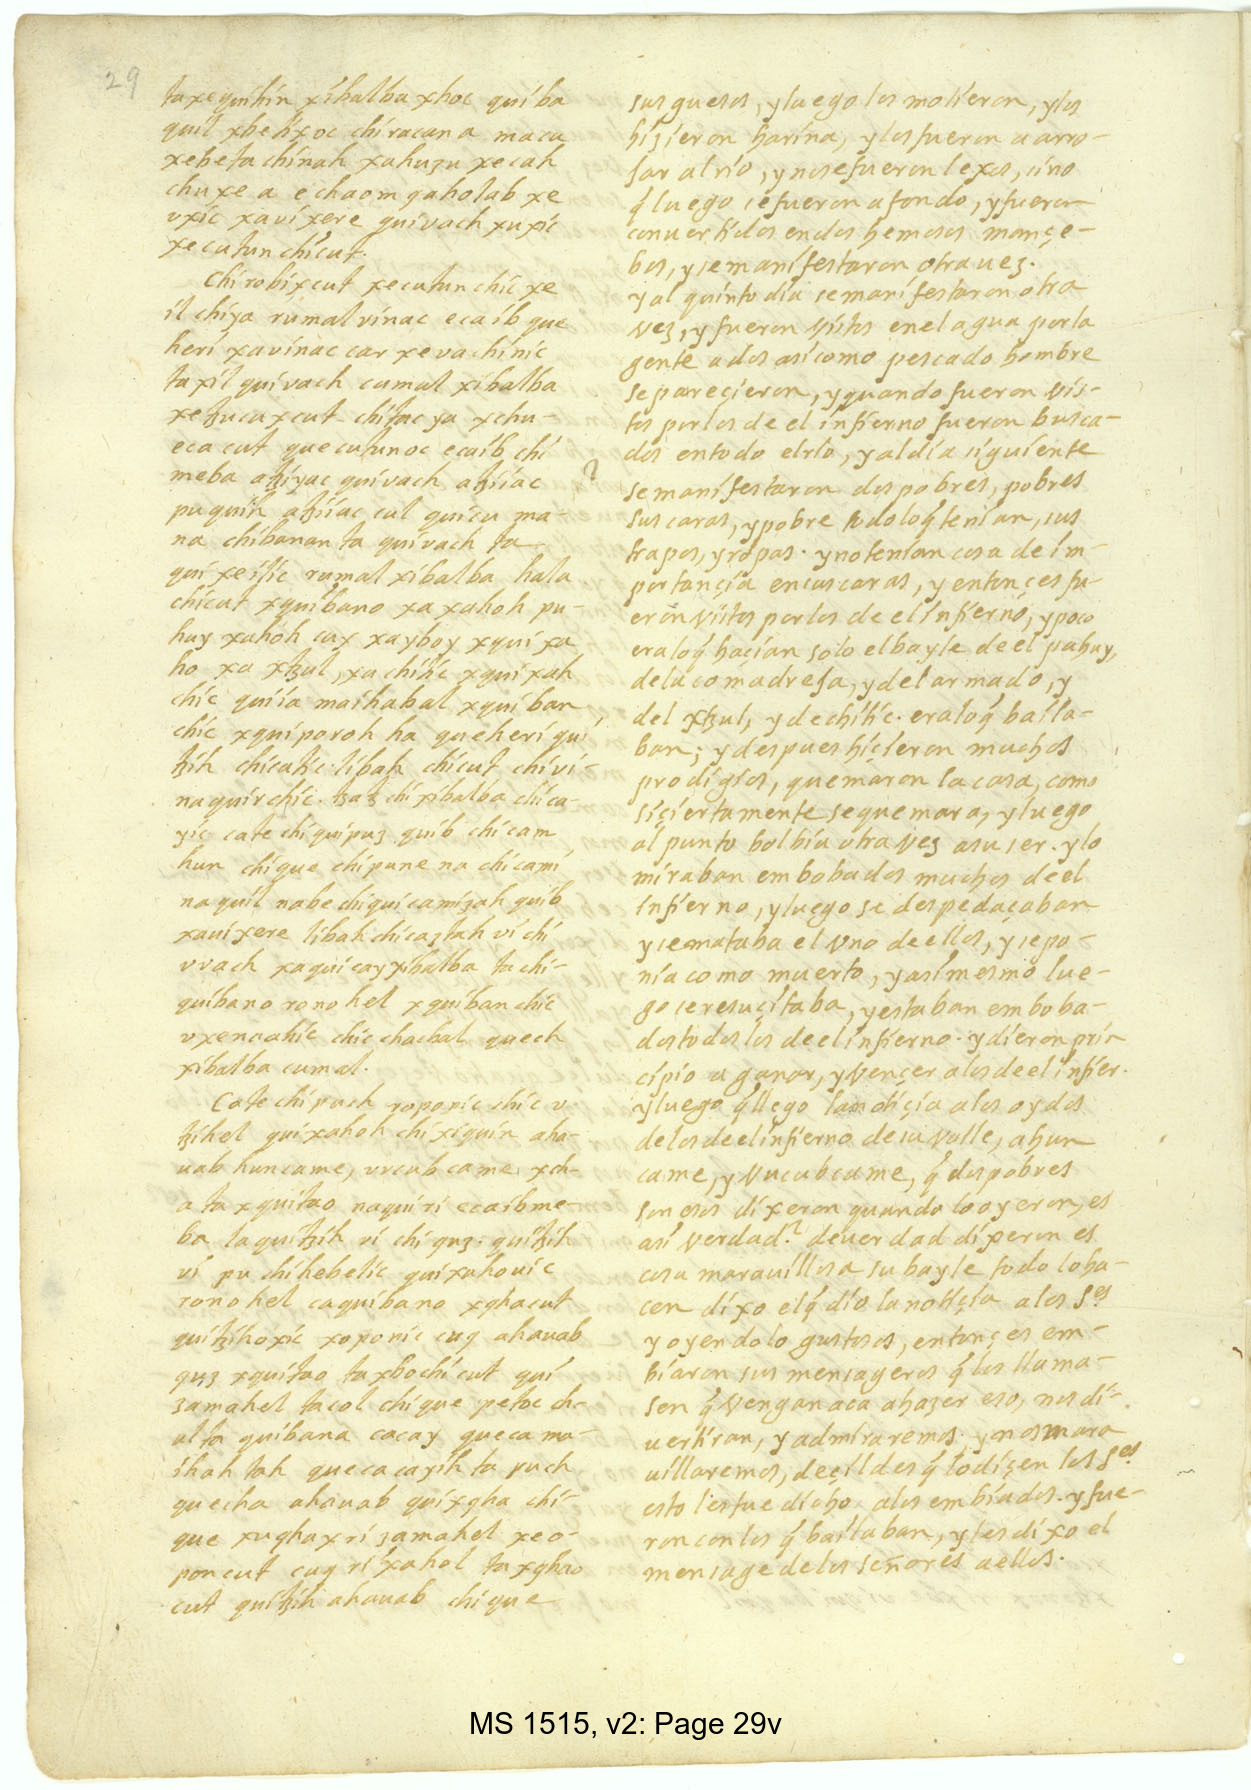 29
taxequihin xibalba xhoc quiba
quil xbetixoc chiracan a maca
xebeta chinah xahuzu xecah
chuxe a e chaom qaholab xe
vxic xavixere quivach xuxic
xecutun chicut.
Chirobixcut xecutun chic xe
il chiya rumal vinac ecaib que
heri xavinac car xevachinic
taxil quivach cumal xibalba
xetzucuxcut chitac ya xchu-
eca cut quecutunoc ecaib chi
meba atziyac quivach atziiac
puquih atziiac cul quicu ma-
na chibanan ta quivach ta
quixeilic rumal xibalba hala
chicut xquibano xa xahoh pu-
huy xahoh cux xayboy xquixa
ho xa xtzul, xa chitic xquixah
chic quiia maihabal xquiban
chic xquiporoh ha queheri qui
tzih chicatic. libah chicut chivi-
naquirchic. tzatz chi xibalba chica-
yic cate chiquipuz quib chicam
hun chique chipune na chicami
naquil nabe chiquicamizah quib
xavixere libah chicaztah vi chi
vvach xaquicay xibalba tachi-
quibano ronohel xquiban chic
vxenaahic chic chachal quech
xibalba cumal.
Catechipuch xoponic chic v
tzihel quixahoh chixiquin aha-
uab huncame, vvcub came xch-
a ta xquitao naqui ri ecaib me-
ba laquitzih vi chi quz. quitzih
vi pu chihebelic quixahovic
ronohel caquibano xqhacut
quitzihoxic xoponic cuq ahauab
quz xquitao taxbochicut qui
zamahel tacol chique petoc ch-
al ta quibana cacay quecama-
ihah tah quecacayih ta puch
quecha ahauab quixqha chi-
que xuqhax ri zamahel xeo-
poncut cuq ri xahol taxqhao
cut quitzih ahauab chique
sus guesos, y luego los molieron, y los
hizieron harina, y los fueron a arro-
jar al rio, y no se fueron lexos, sino
q̃ luego se fueron a fondo, y fueron
convertidos en dos hermosos mançe-
bos, y se manifestaron otra uez.
y al quinto dia se manifestaron otra
vez, y fueron vistos en el agua por la
gente a dos asi como pescado hombre
se pareçieron, y quando fueron vis-
tos por los de el infierno fueron busca-
dos en todo el rio, y al dia siguiente
se manifestaron dos pobres, pobres
sus caras, y pobre todo lo q̃ tenian, sus
trapos, y ropas. y no tenian cosa de im-
portançia en sus caras, y entonçes fu-
eron vistos por los de el infierno, y poco
era lo q̃ haçian solo el bayle de el puhuy,
de la comadreja, y del armado, y
del xtzul, y de chitic. era lo q̃ baila-
ban; y despues hiçieron muchos
prodigios, quemaron la casa, como
si çiertamente se quemara, y luego
al punto bolbia otra vez a su ser. y lo
miraban embobados muchos de el
infierno, y luego se despedaçaban
y se mataba el vno de ellos, y se po-
nia como muerto, y asi mesmo lue-
go se resuçitaba, y estaban emboba-
dos todos los de el infierno. y dieron prin
cipio a ganar, y vençer a los de el infier.
y luego q̃ llego la notiçia a los oydos
de los de el infierno de su valle, a hun
came, y vucubcame, q̃ dos pobres
son esos dixeron quando lo oyeron, es
asi verdad? de verdad dixeron es
cosa maravillosa su bayle todo lo ha-
cen dixo el q̃ dio la notiçia a los Sẽs
y oyendolo gustosos, entonçes em-
biaron sus mensageros q̃ los llama-
sen q̃ vengan aca a hazer eso, nos di-
vertiran, y admiraremos, y nos mara
villaremos, deçildes q̃ lo diçen los Sẽs
esto les fue dicho a los embiados. y fue-
ron con los q̃ bailaban, y les dixo el
mensage de los señores a ellos.
MS 1515, v2: Page 29v